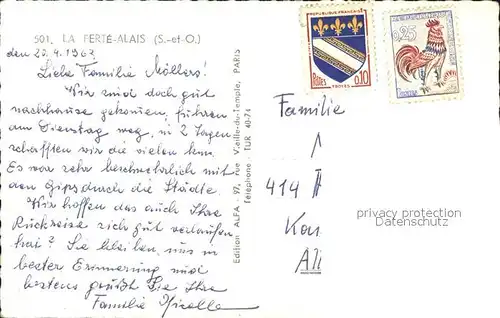 501. LA FERTÉ-ALAIS (S.-et-O.)
den 20.4.1963
Liebe Familie Möllers!
Wir sind doch gut
nachhause gekommen, fuhren
am Dienstag weg, in 2 Tagen
schafften wir die vielen km.
Es war sehr beschwerlich mit
den Gips durch die Städte.
Wir hoffen das auch Ihre
Rückreise sich gut verlaufen
hat? Sie bleiben uns in
bester Erinnerung und
bestens grüßt Sie Ihre
Familie
Edition ALFA, 97, rue Vieille-du-Temple, PARIS
Téléphone : TUR 40-74
REPUBLIQUE FRANÇAISE
Postes 0,10
TROYES
0,25
Familie
414
Kan
All
privacy protection
Datenschutz